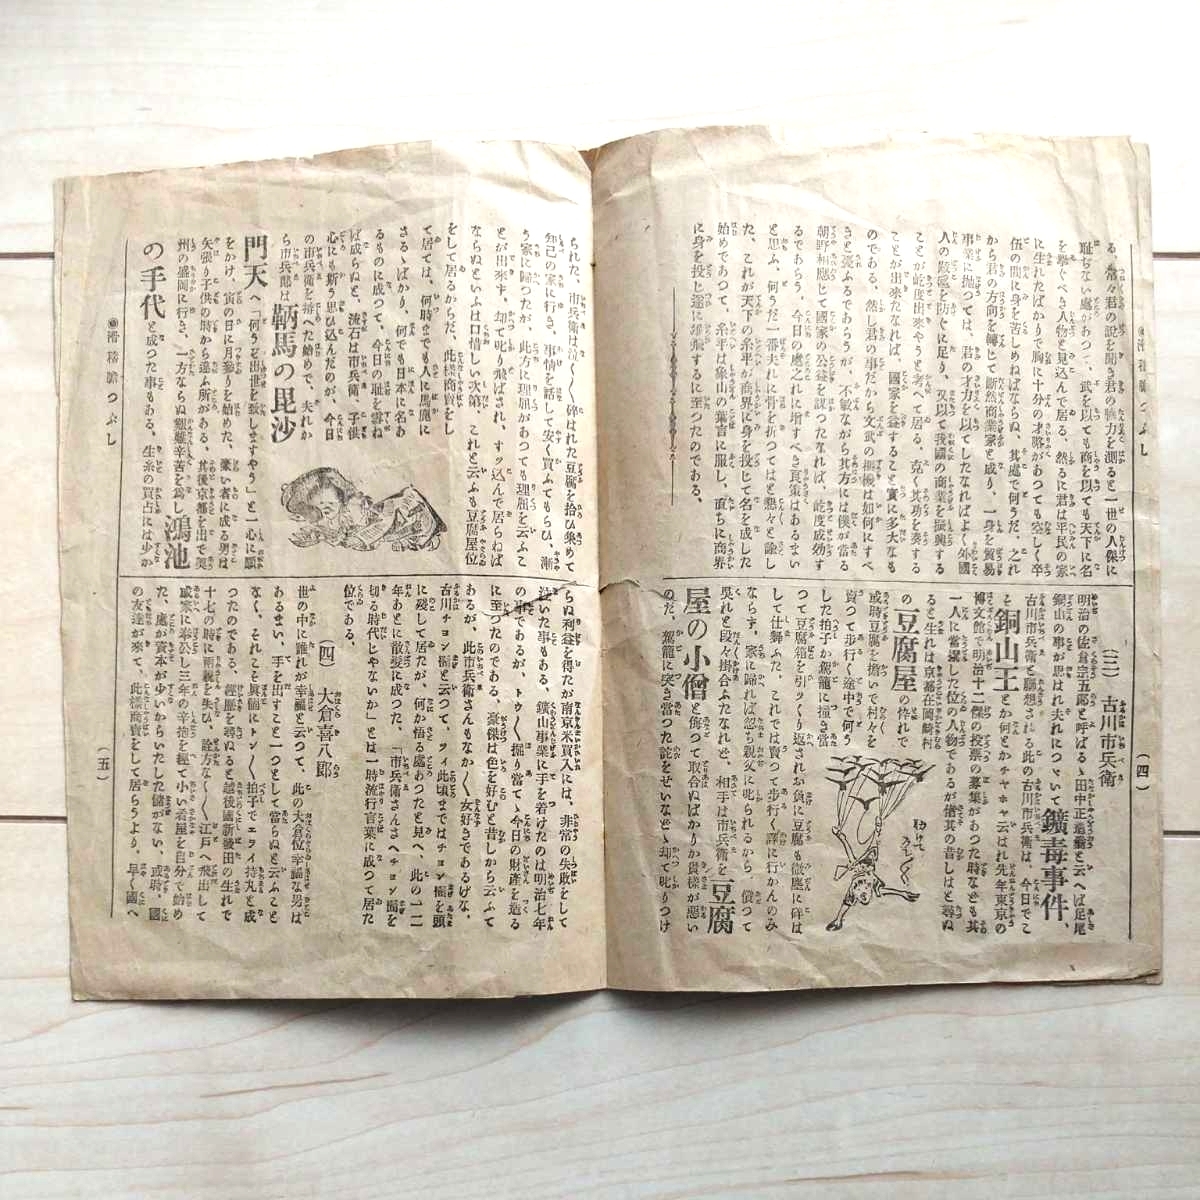 (四)
る、常々君の說を聞き君の魄力を測ると一世の人傑に
恥ぢない處があつて、武を以ても商を以ても天下に名
を擧ぐべき人物と見込んで居る、然るに君は平民の家
に生れたばかりで胸に十分の才略があつても空しく卒
伍の間に身を苦しめねばならぬ、其處で何うだ、之れ
から君の方向を轉じて斷然商業家と成り、一身を貿易
事業に抛つては、君の才力を以てしたなればよく外國
人の跋扈を防ぐに足り、又以て我國の商業を振興する
ことが屹度出來やうと考へて居る、克く其功を奏する
ことが出來たなれば、國家を益すること實に多大なも
のである、然し君の事だから文武の振機は如何にすべ
きと憂ふるであらうが、不敏ながら其方には僕が當る
朝野相應じて國家の公益を謀つたなれば、屹度成效す
るであらう、今日の處之れに增すべき良策はあるまい
と思ふ、何うだ一番夫れに骨を折つてはと懇々と諭し
た、これが天下の糸平が商界に身を投じて名を成した
始めであつて、糸平は象山の葉言に服し、直ちに商界
に身を投じ遂に雄飛するに至つたのである、
(三) 古川市兵衛
明治の佐倉宗五郎と呼ばるゝ田中正造翁と云へば足尾
銅山の事が思はれ夫れにつゞいて鑛毒事件、
古川市兵衛と聯想される此の古川市兵衛は、今日でこ
そ銅山王とか何とかチヤホヤ云はれ先年東京の
博文館で明治十二傑の投票の募集があつた時なども其
一人に當撰した位の人物であるが偖其の昔しはと尋ぬ
ると生れは京都在岡崎村
の豆腐屋の悴れで
或時豆腐を擔いで村々を
賣つて步行く途中で何う
した拍子か駕籠に撞き當
つて豆腐箱を引ッくり返され加負に豆腐も微塵に碎は
して仕舞ふた、これでは賣つて步行く譯に行かんのみ
ならず、家に歸れば忽ち親父に叱られるから、償つて
吳れと段々掛合ふたなれど、相手は市兵衛を豆腐
屋の小僧と侮つて取合ぬばかりか貴樣が惡い
のだ、駕籠に突き當つた詑をせいなどゝ却て叱りつけ
られた、市兵衛は泣く〱碎はれた豆腐を拾ひ集めて
知己の家に行き、事情を話して安く買ふてもらひ、漸
う家に歸つたが、此方に理屈があつても理屈を云ふこ
とが出來ず、却て叱り飛ばされ、すッ込んで居らねば
ならぬといふは口惜しい次第、これと云ふも豆腐屋位
をして居るからだ、此樣商賣をし
て居ては、何時までも人に馬鹿に
さるゝばかり、何でも日本に名あ
るものに成つて、今日の恥を雪ね
ば成らぬと、流石は市兵衛、子供
心にも斯う思ひ込んだのが、今日
の市兵衛を拵へた始めで、夫れか
ら市兵衛は鞆馬の毘沙
門天へ「何うぞ出世を致しますやう」と一心に願
をかけ、寅の日に月參りを始めた、豪い者に成る男は
矢張り子供の時から違ふ所がある、其後京都を出で奧
州の盛岡に行き、一方ならぬ艱難辛苦を爲し鴻池
の手代と成つた事もある、生糸の買占には少か
らぬ利益を得たが南京米買入には、非常の失敗をして
泣いた事もある、鑛山事業に手を着けたのは明治七年
の事であるが、トウ〱掘り當てゝ今日の財產を造る
に至つたのである、豪傑は色を好むと昔しから云ふて
あるが、此市兵衛さんもなか〱女好きであるげな、
古川チョン髷と云つて、ツィ此頃まではチョン髷を頭
に殘して居たが、何か悟る處あつたと見へ、此の一二
年あとに散髮に成つた、「市兵衛さんさへチョン髷を
切る時代じやないか」とは一時流行言葉に成つて居た
位である、
(四) 大倉喜八郎
世の中に誰れが幸福と云つて、此の大倉位幸福な男は
あるまい、手を出すこと一つとして當らぬと云ふこと
なく、それこそ眞個にトン〱拍子でエライ持丸と成
つたのである、經歷を尋ぬると越後國新發田の生れで
十七の時に兩親を失ひ、詮方なく〱江戶へ飛出して
或家に奉公し三年の辛抱を經て小い若屋を自分で始め
た、處が資本が少いからいたした儲がない、或時、國
の友達が來て、此樣商賣をして居らうより、早く國へ
◎滑稽膽つぶし
(五)